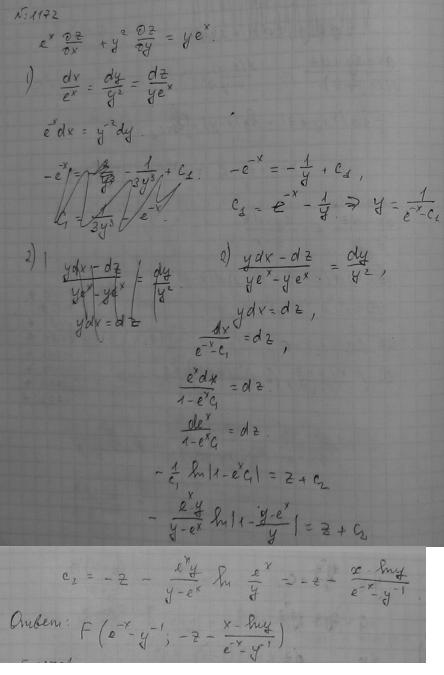 №:1172
e^x ∂z/∂x + y² ∂z/∂y = ye^x.
1) dx/e^x = dy/y² = dz/ye^x
e^{-x}dx = y^{-2}dy.
-e^{-x} = -1/y + c₁,
c₁ = e^{-x} - 1/y ⇒ y = 1/(e^{-x} - c₁)
2) (ydx - dz)/(ye^x - ye^x) = dy/y²,
ydx = dz,
dx/(e^{-x} - c₁) = dz,
e^x dx/(1 - e^x c₁) = dz
de^x/(1 - e^x c₁) = dz.
-1/c₁ ln|1 - e^x c₁| = z + c₂
- e^x y/(y - e^x) ln|1 - (y - e^x)/y| = z + c₂
c₂ = -z - e^x y/(y - e^x) ln e^x/y = -z - (x - ln y)/(e^{-x} - y^{-1}).
Ответ: F(e^{-x} - y^{-1}; -z - (x - ln y)/(e^{-x} - y^{-1}))